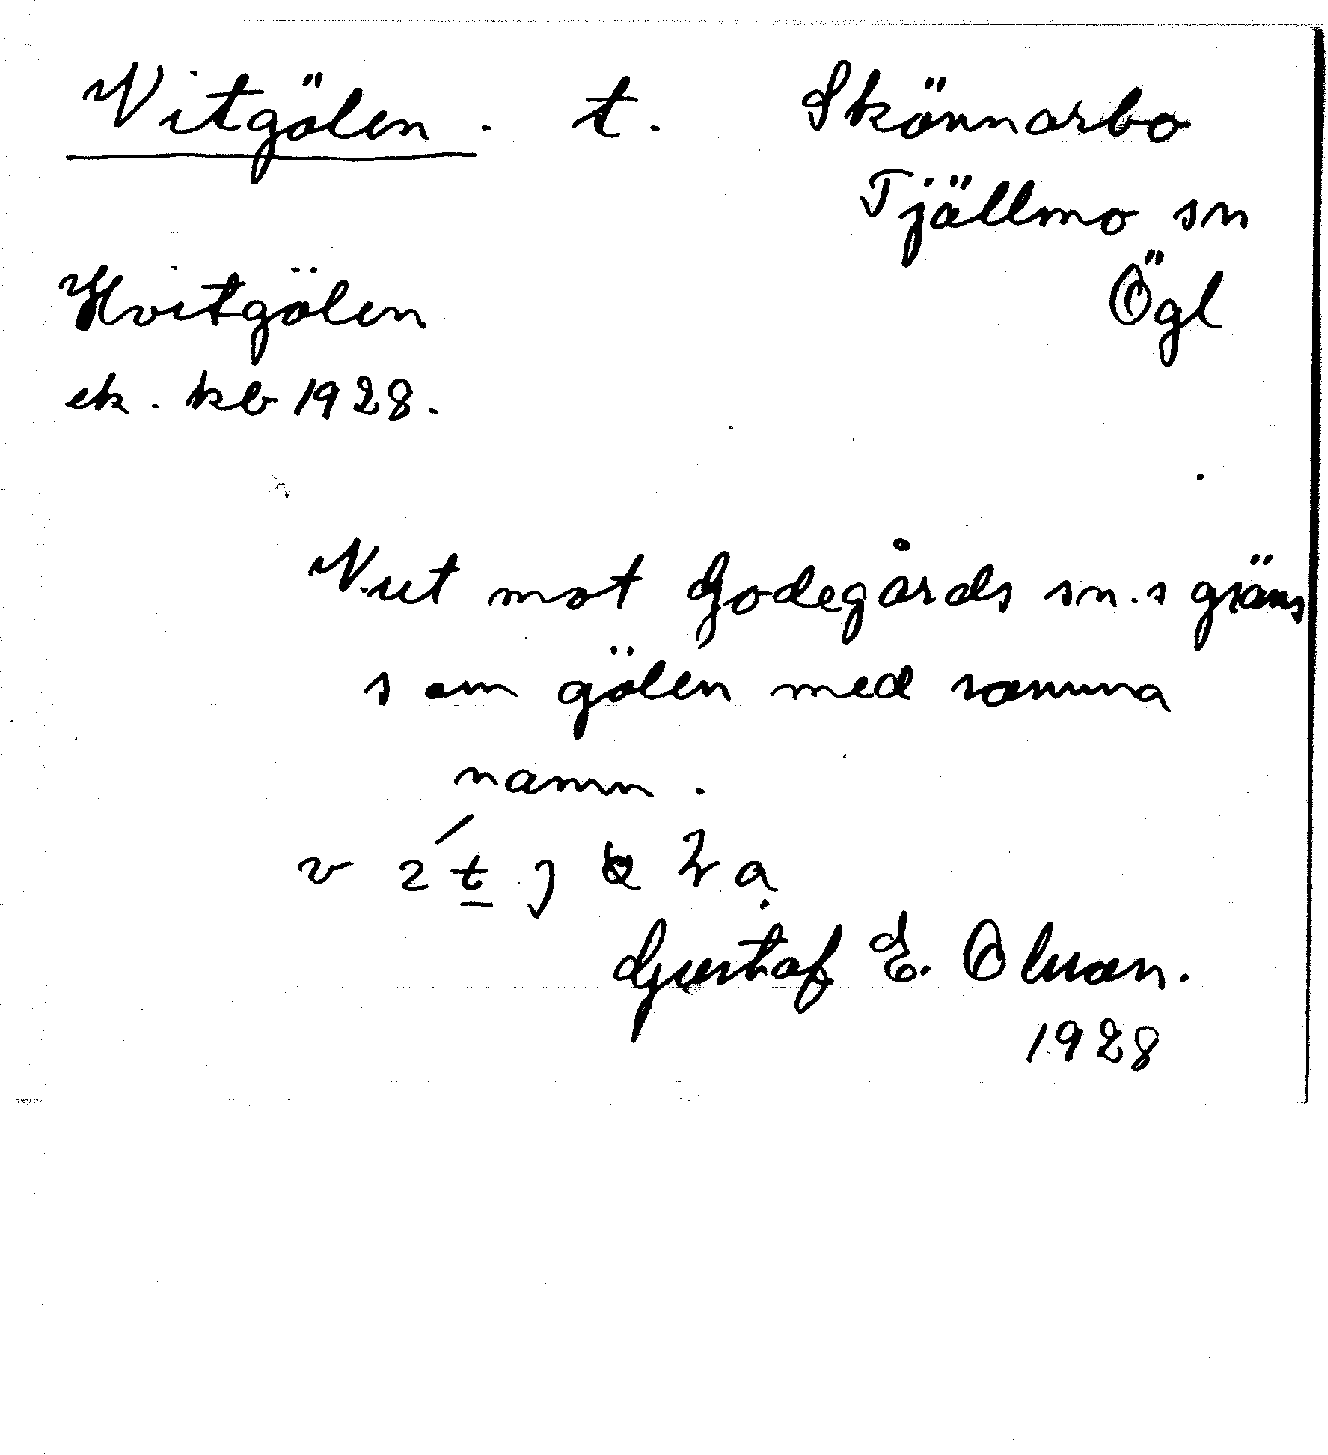 Vitgölen. t. Skönnarbo
Tjällmo sn
Ögl
Hvitgölen
ek. kb 1928.
V.ut mot Godegårds sn.s gräns
som gölen med samma
namn.
Gustaf E. Olsson.
1928